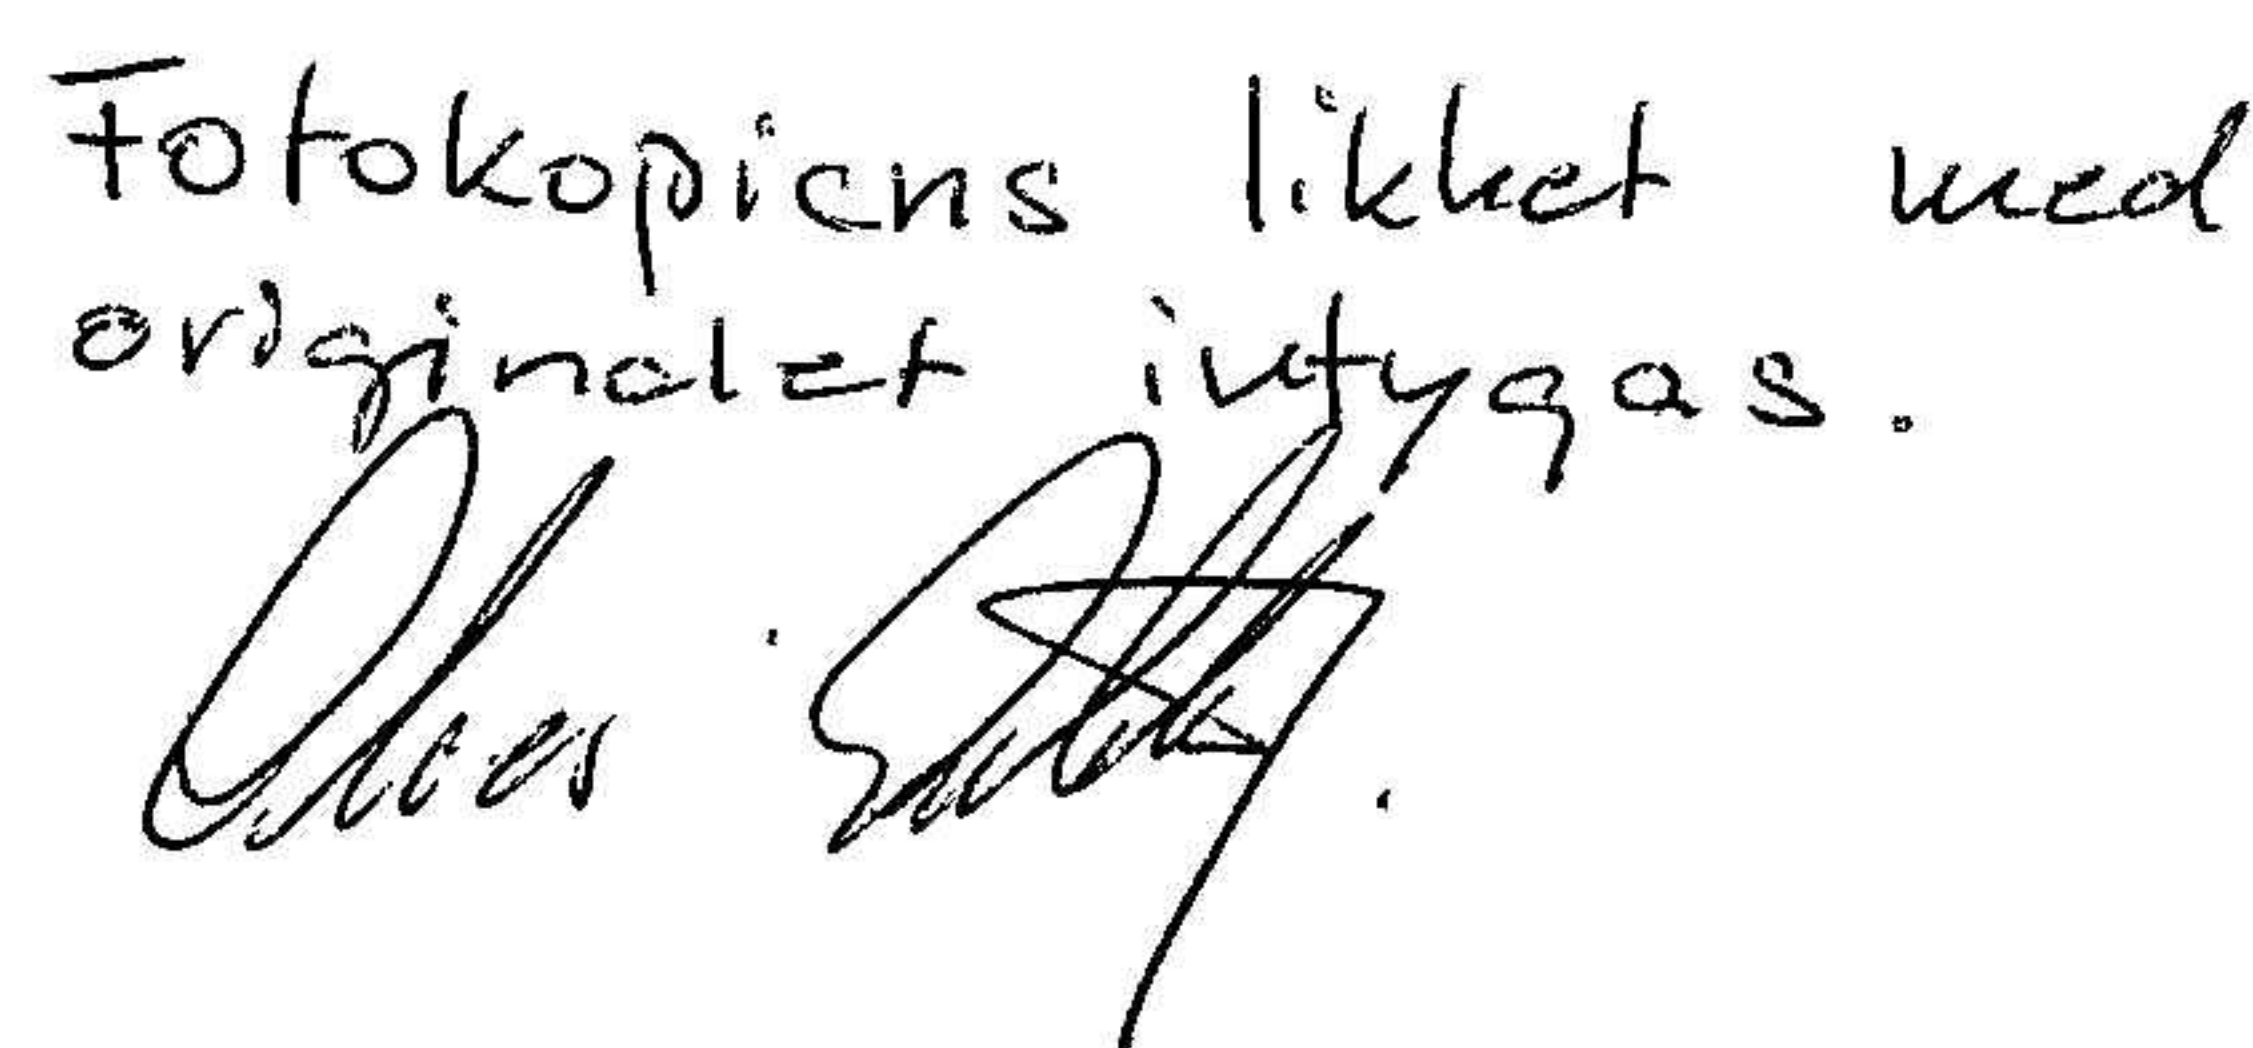 Fotokopiens likhet med
originalet intygas.